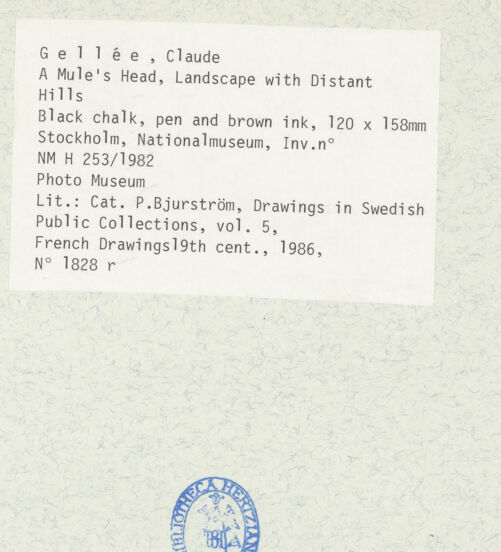 G e l l é e , Claude
A Mule's Head, Landscape with Distant
Hills
Black chalk, pen and brown ink, 120 x 158mm
Stockholm, Nationalmuseum, Inv.n°
NM H 253/1982
Photo Museum
Lit.: Cat. P.Bjurström, Drawings in Swedish
Public Collections, vol. 5,
French Drawings19th cent., 1986,
N° 1828 r
BIBLIOTHECA HERTZIAN